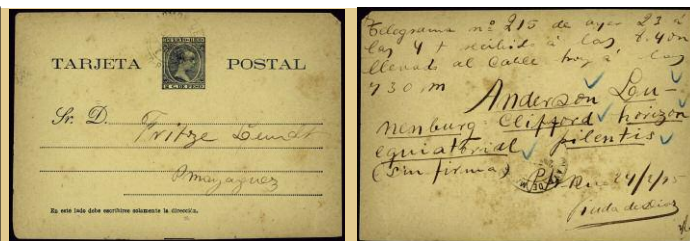 TARJETA POSTAL
Sr. D. Fritze Lundt
Mayaguez
En este lado debe escribirse solamente la dirección.
Telegrama nº 215 de ayer 23 á
las 4 t recibido á las 8.40n
llevado al Cable hoy á las
7 30 m Anderson Lu-
nenburg Clifford horizon
equiatorial pilentis
(sin firma)
24/1/95
Viuda de